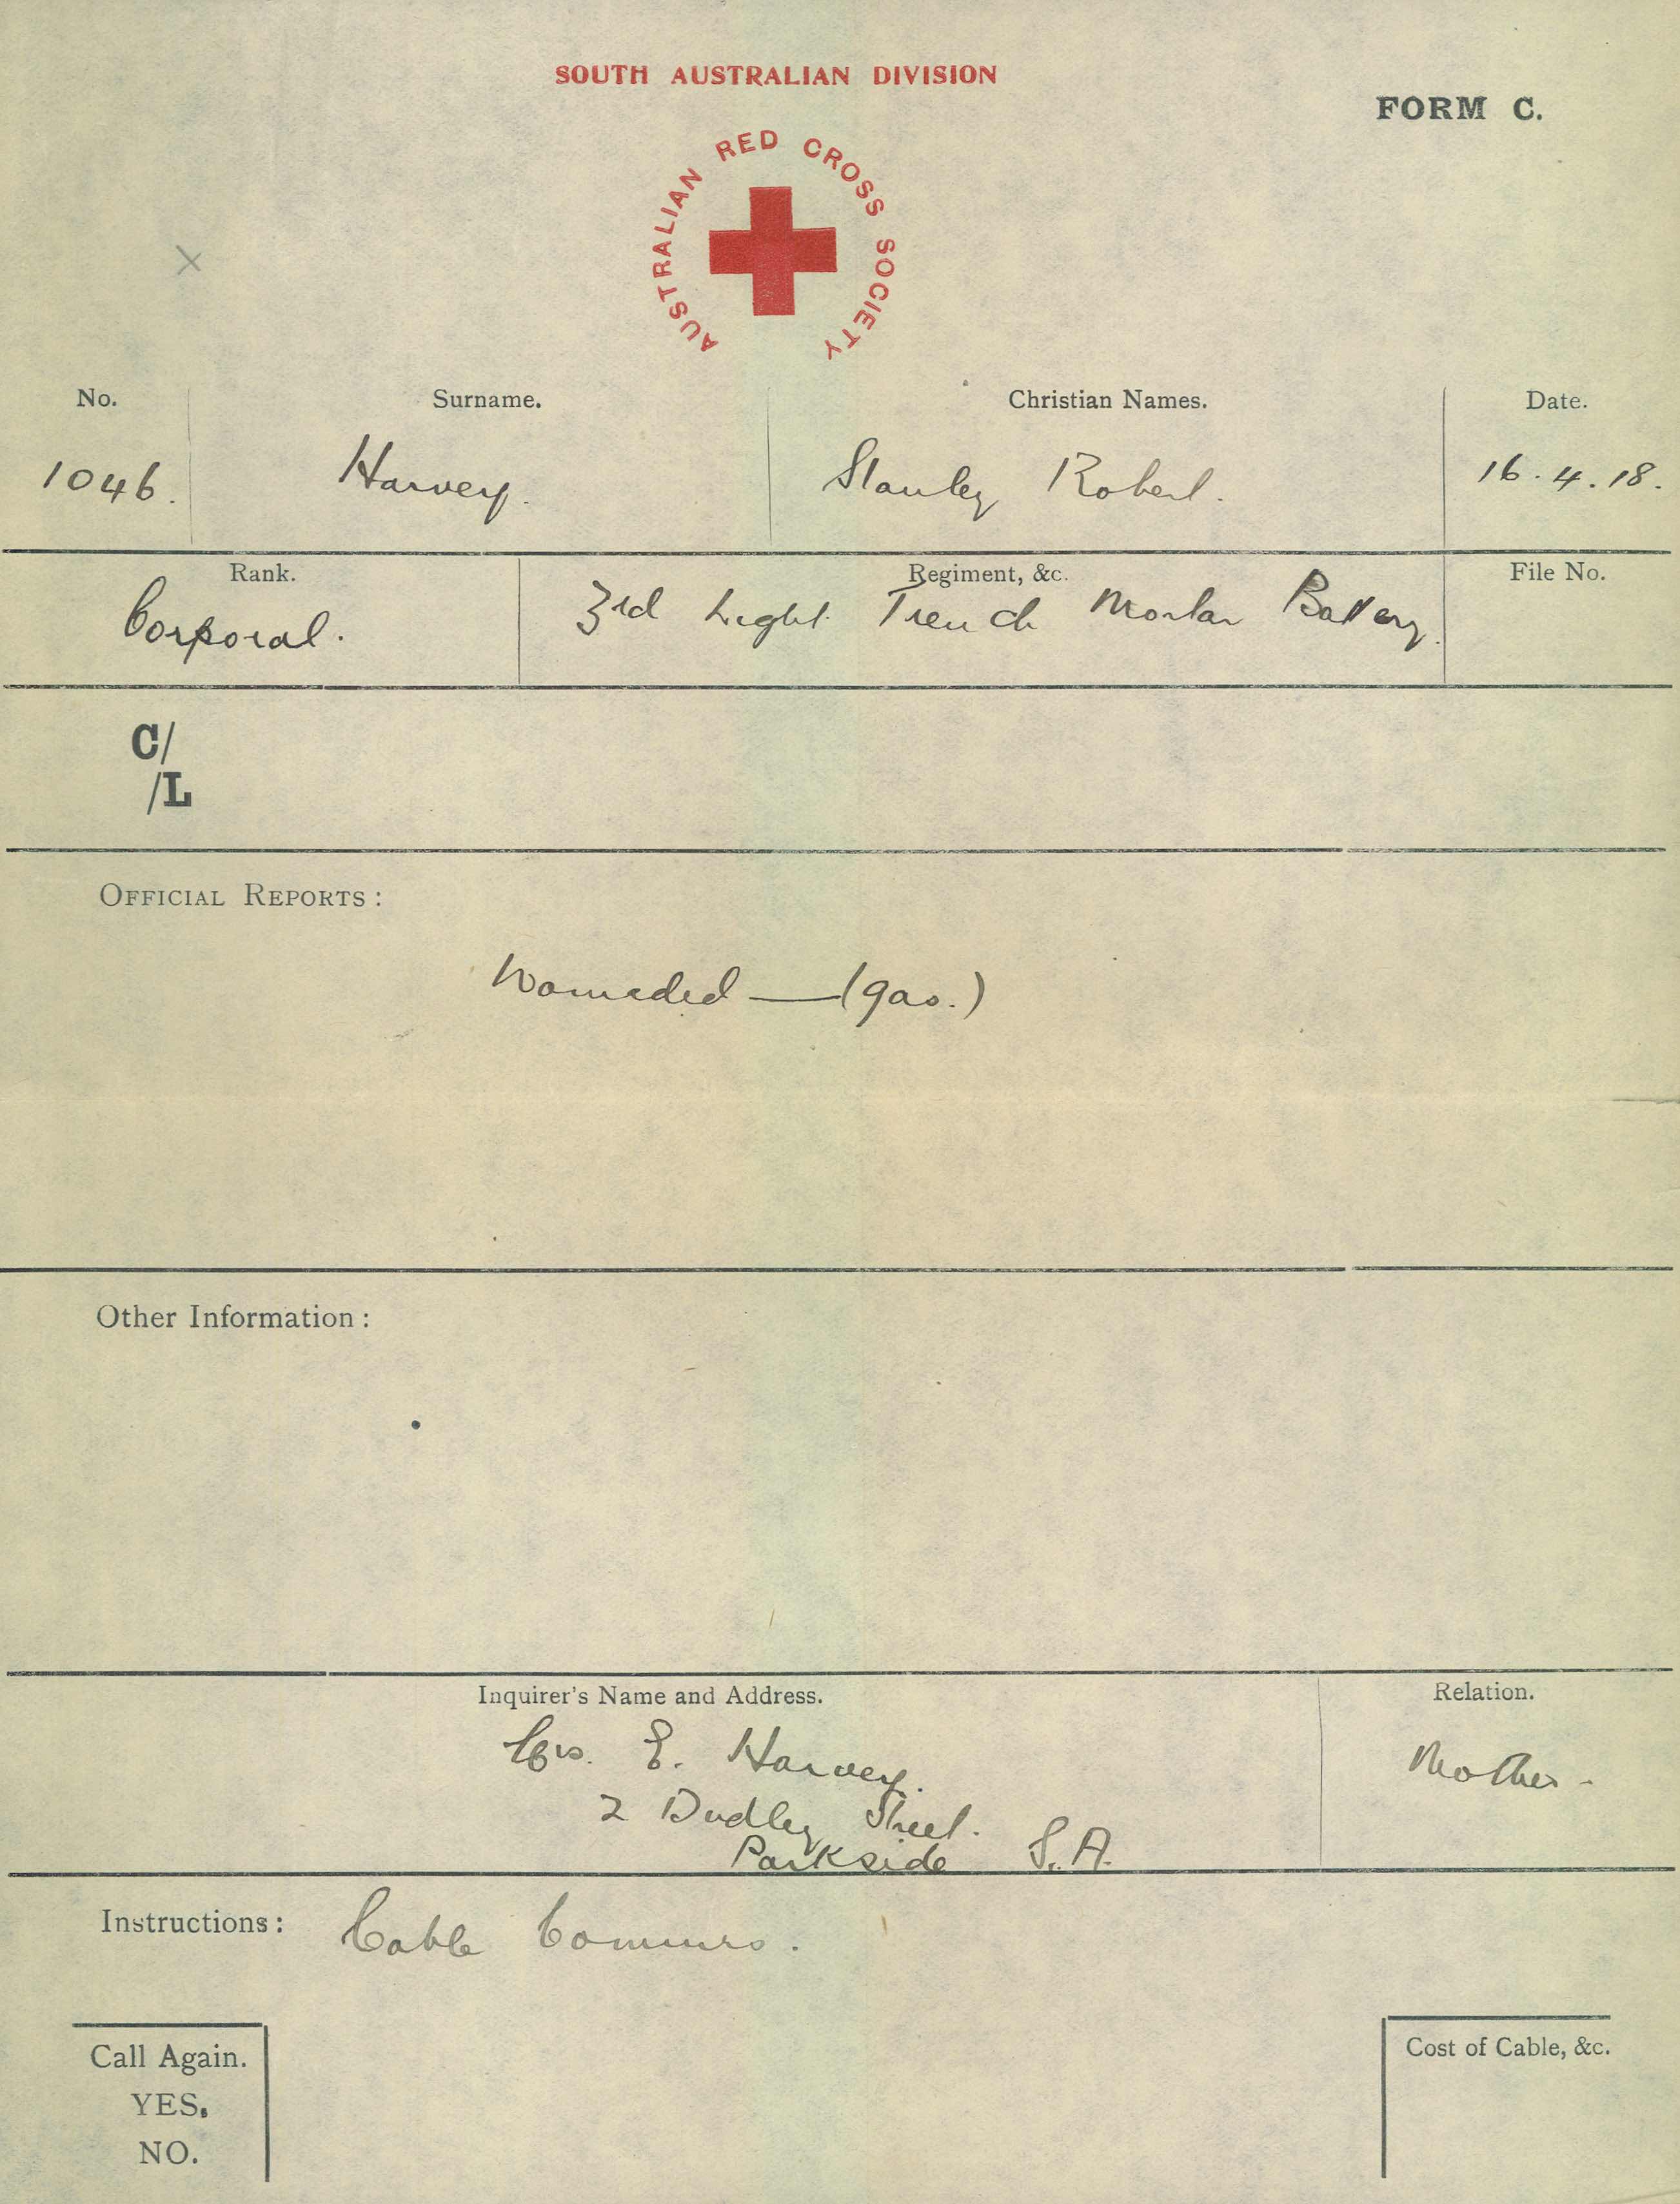 SOUTH AUSTRALIAN DIVISION
FORM C.
AUSTRALIAN RED CROSS SOCIETY
No. Surname. Christian Names. Date.
1046. Harvey. Stanley Robert. 16.4.18.
Rank. Regiment, &c. File No.
Corporal. 3rd Light Trench Mortar Battery.
C/
/L
OFFICIAL REPORTS:
Wounded — (gas.)
Other Information:
Inquirer's Name and Address. Relation.
Mrs. E. Harvey. Mother -
2 Dudley Street.
Parkside S.A.
Instructions: Cable Commrs.
Call Again. Cost of Cable, &c.
YES.
NO.